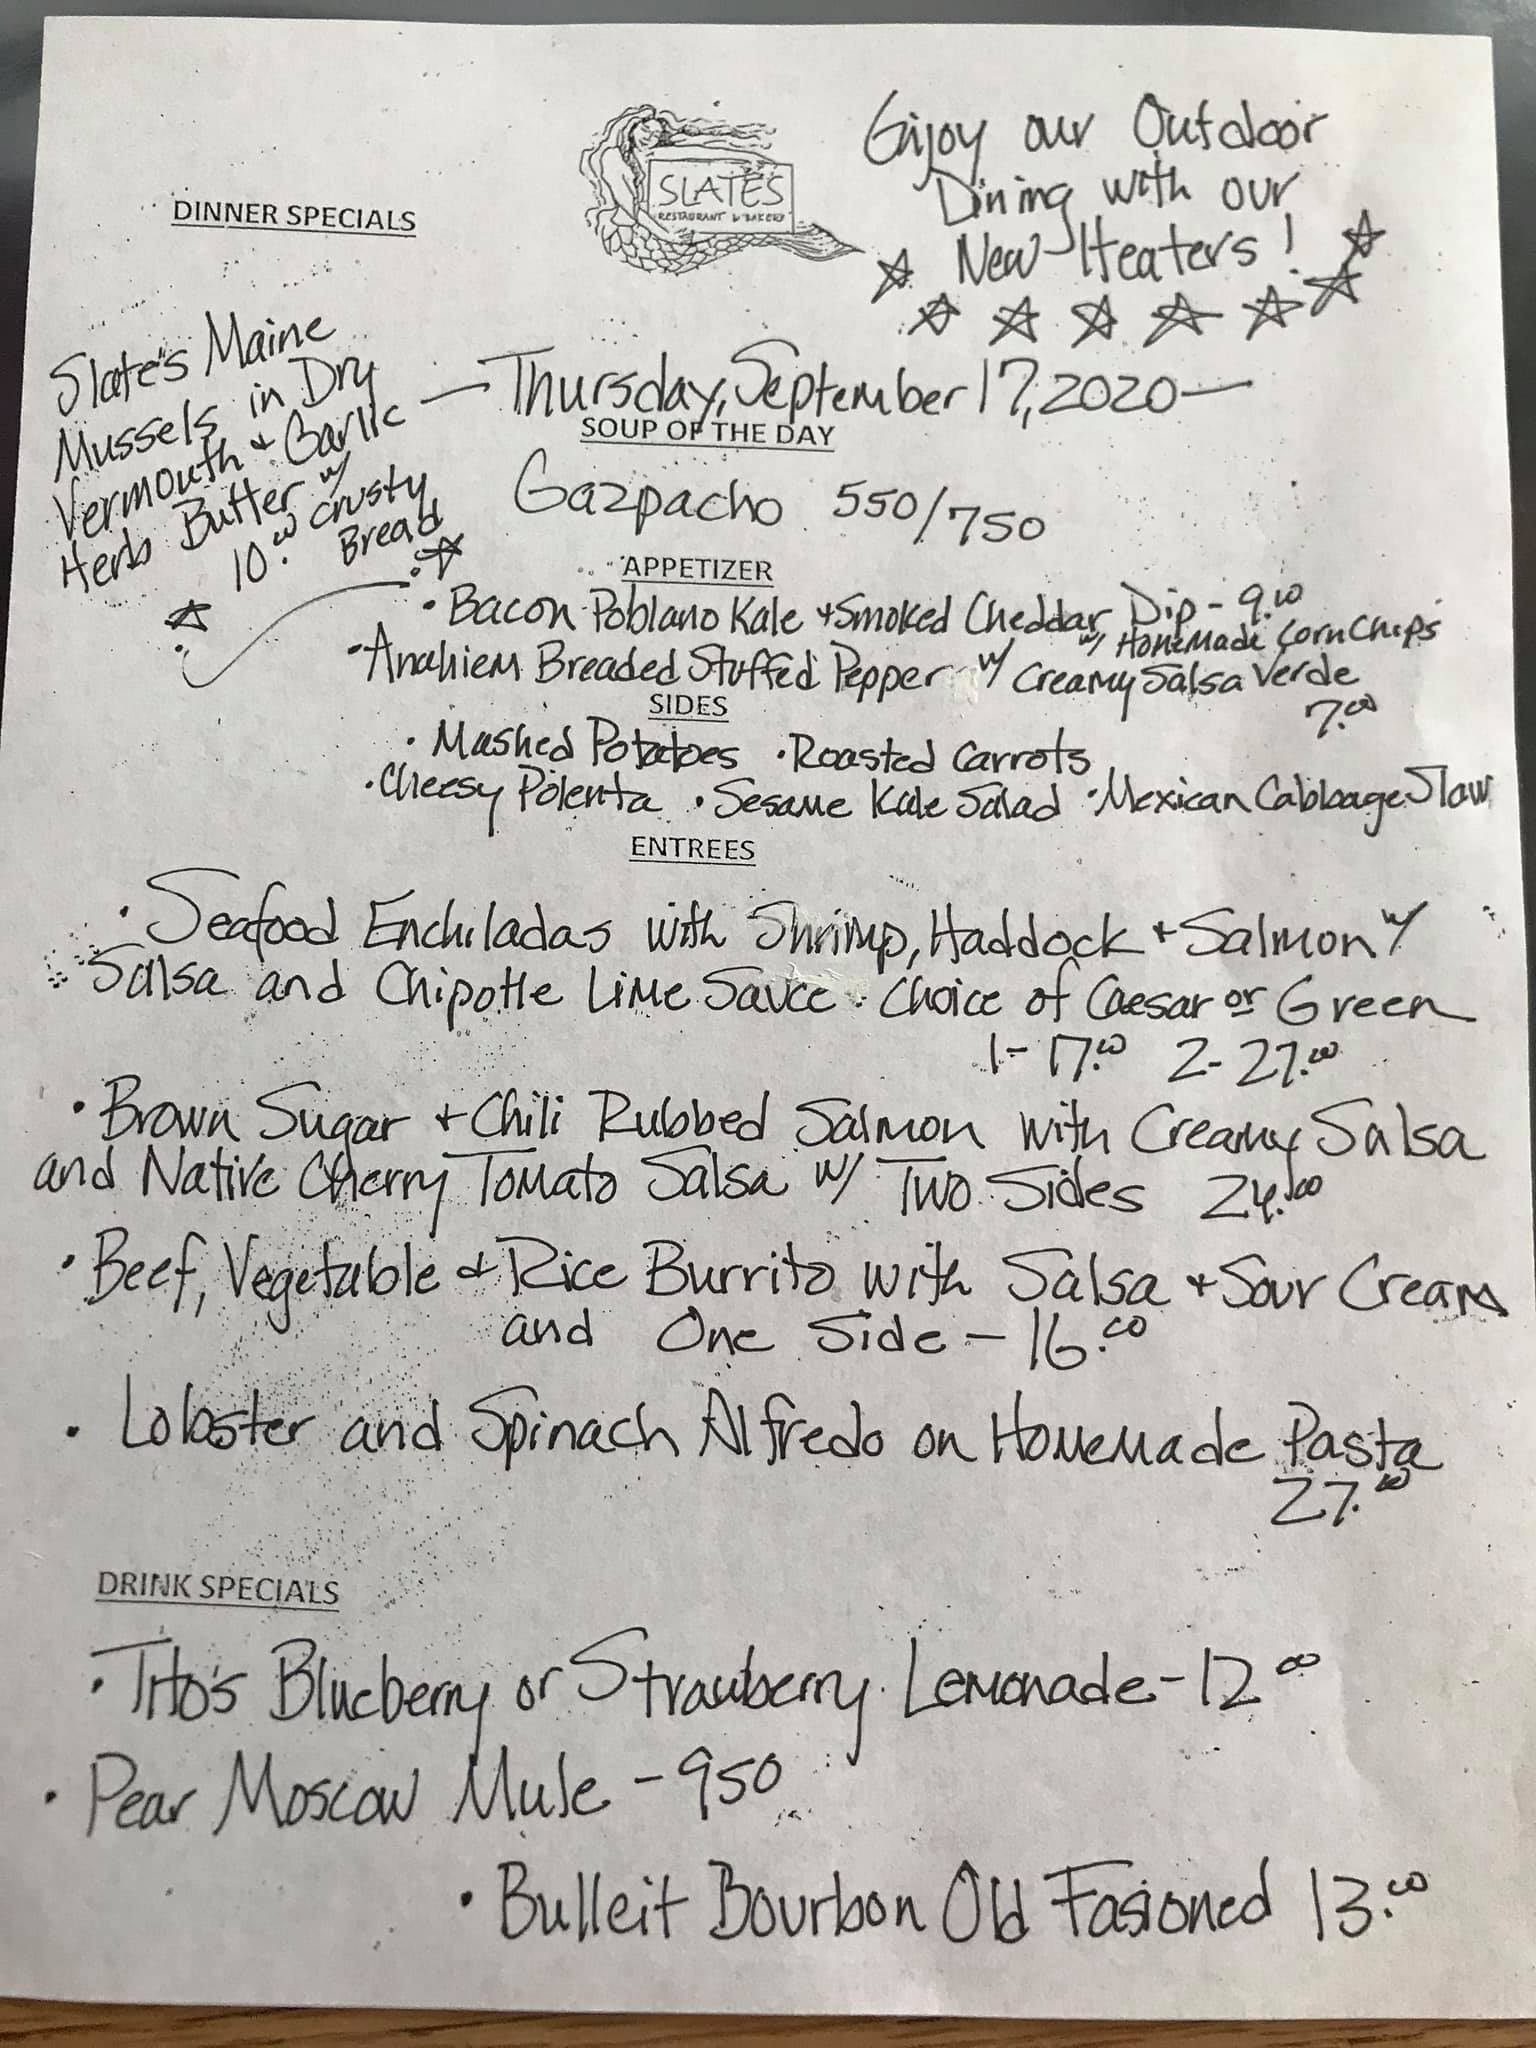 DINNER SPECIALS
SLATES
RESTAURANT & BAKERY
Enjoy our Outdoor
Dining with our
New Heaters!
Slate's Maine
Mussels in Dry
Vermouth + Garlic
Herb Butter w/
10.00 Crusty
Bread
— Thursday, September 17, 2020 —
SOUP OF THE DAY
Gazpacho 550/750
APPETIZER
• Bacon Poblano Kale + Smoked Cheddar Dip - 9.00
w/ Homemade Corn Chips
• Anahiem Breaded Stuffed Pepper w/ Creamy Salsa Verde
7.00
SIDES
• Mashed Potatoes • Roasted Carrots
• Cheesy Polenta • Sesame Kale Salad • Mexican Cabbage Slaw
ENTREES
• Seafood Enchiladas with Shrimp, Haddock + Salmon w/
Salsa and Chipotle Lime Sauce. Choice of Caesar or Green
1- 17.00 2- 27.00
• Brown Sugar + Chili Rubbed Salmon with Creamy Salsa
and Native Cherry Tomato Salsa w/ Two Sides 24.00
• Beef, Vegetable + Rice Burrito with Salsa + Sour Cream
and One Side - 16.00
• Lobster and Spinach Alfredo on Homemade Pasta
27.00
DRINK SPECIALS
• Tito's Blueberry or Strawberry Lemonade - 12 00
• Pear Moscow Mule - 950
• Bulleit Bourbon Old Fasioned 13.00